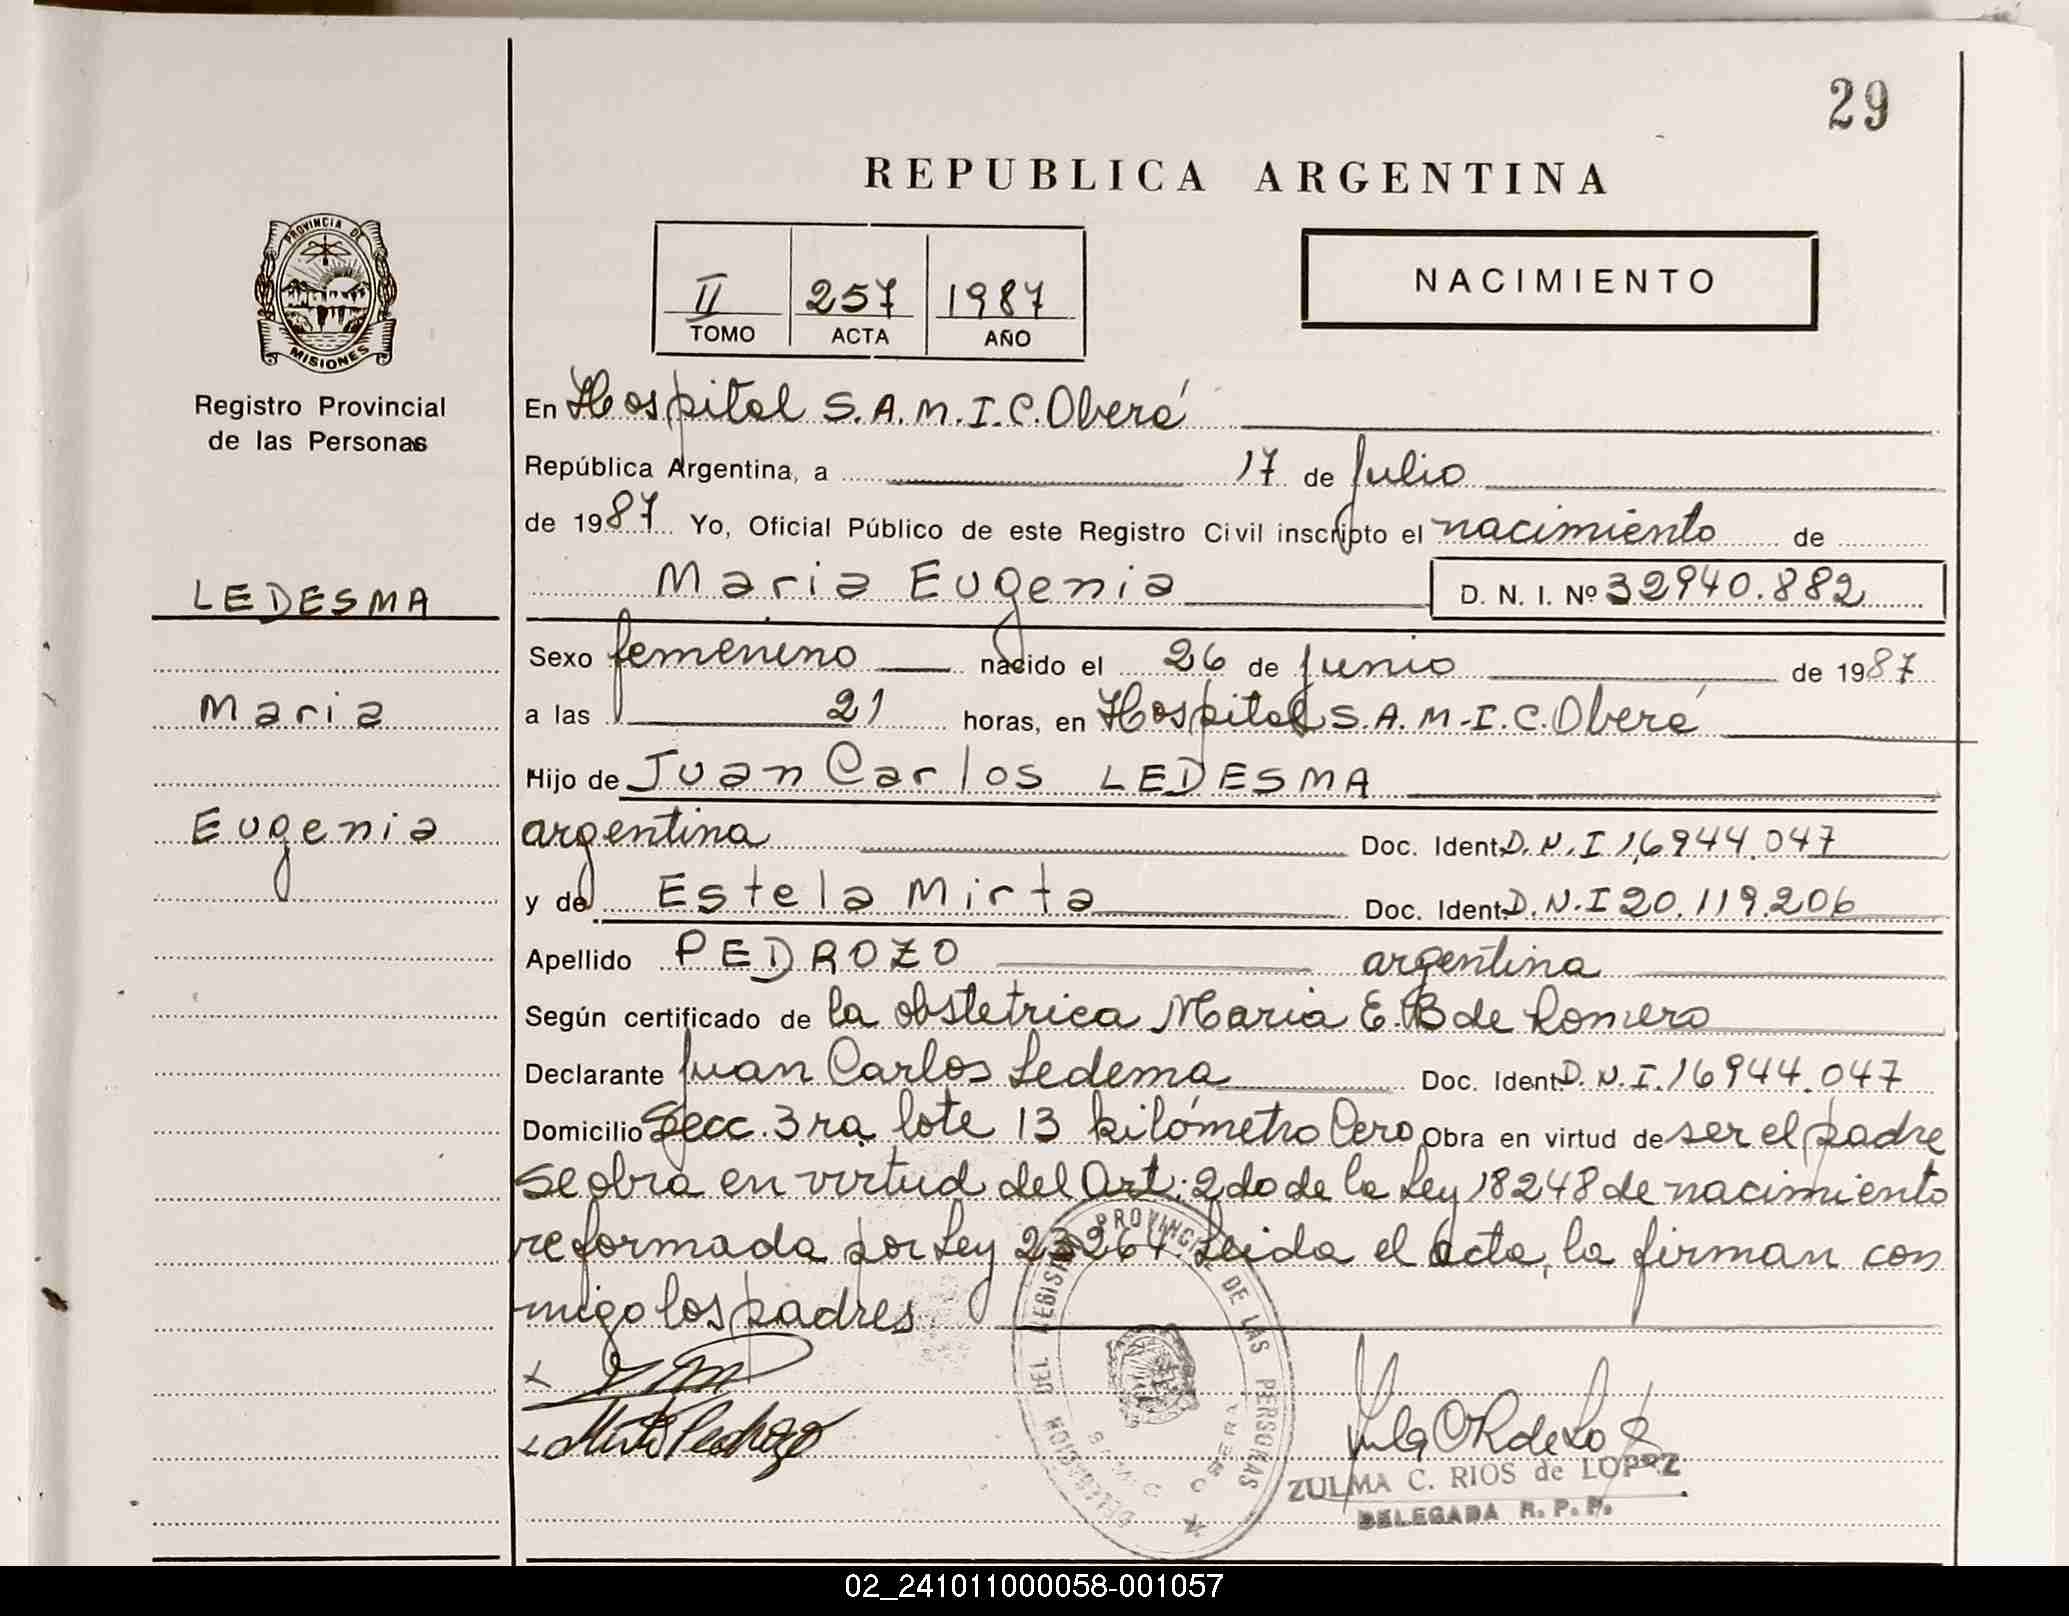 29
REPUBLICA ARGENTINA
PROVINCIA DE
MISIONES
Registro Provincial
de las Personas
II 257 1987
TOMO ACTA AÑO
NACIMIENTO
En Hospital S.A.M.I.C. Oberá
República Argentina, a 17 de Julio
de 1987 Yo, Oficial Público de este Registro Civil inscripto el nacimiento de
Maria Eugenia D. N. I. Nº 32940.882
LEDESMA
Sexo femenino nacido el 26 de Junio de 1987
Maria
a las 21 horas, en Hospital S.A.M.I.C. Oberá
Hijo de Juan Carlos LEDESMA
Eugenia
argentina Doc. Ident. D.N.I 16944.047
y de Estela Mirta Doc. Ident. D.N.I 20.119.206
Apellido PEDROZO argentina
Según certificado de la obstetrica Maria E. B de Romero
Declarante Juan Carlos Ledema Doc. Ident. D.N.I. 16944.047
Domicilio Secc. 3ra lote 13 kilómetro Cero Obra en virtud de ser el padre
se obra en virtud del Art. 2do de la Ley 18248 de nacimiento
reformada por Ley 23264. Leida el acta, la firman con
migo los padres
Mirta Pedrozo
DELEGACION DEL REGISTRO PROVINCIAL DE LAS PERSONAS
OBERA
ZULMA C. RIOS de LOPEZ
DELEGADA R. P. P.
02_241011000058-001057